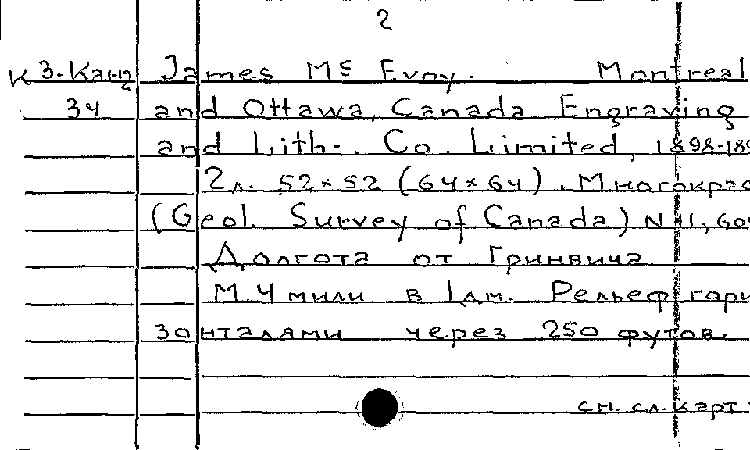 2
К 3-Кан2 James Mc Evoy. Montreal
34 and Ottawa, Canada Engraving
and Lith-. Co. Limited, 1898-189
2л. 52×52 (64×64). Многокрас
(Geol. Survey of Canada) N-1,604
Долгота от Гринвича
М. 4 мили в 1дм. Рельеф гори
зонталями через 250 футов.
см. сл. карт